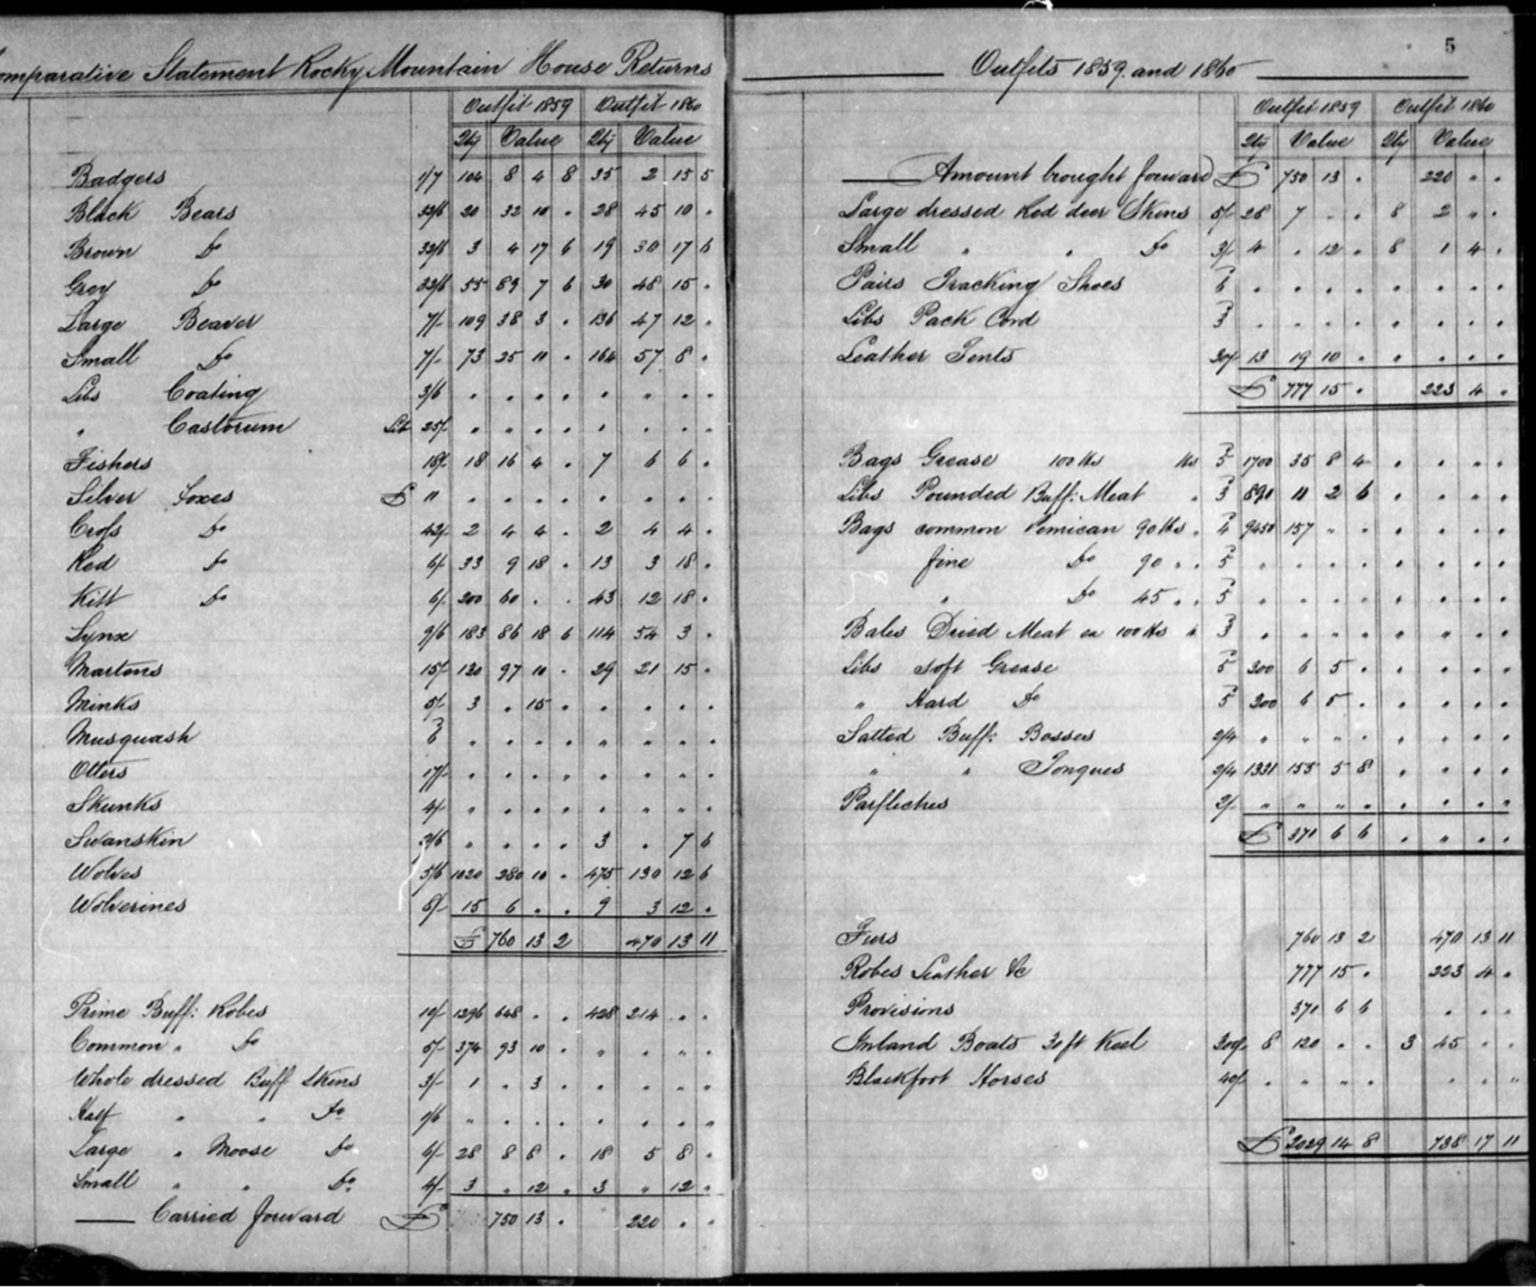 Comparative Statement Rocky Mountain House Returns
Outfit 1859 Outfit 1860
Qty Value Qty Value
Badgers 1/7 104 8 4 8 35 2 15 5
Black Bears 32/6 20 32 10 . 28 45 10 .
Brown Do 32/6 3 4 17 6 19 30 17 6
Grey Do 32/6 55 89 7 6 30 48 15 .
Large Beaver 7/- 109 38 3 . 136 47 12 .
Small Do 7/- 73 25 11 . 164 57 8 .
Libs Coating 3/6 . . . . . . . .
" Castorum Lib 25/- . . . . . . . .
Fishers 18/- 18 16 4 . 7 6 6 .
Silver Foxes £ 11 . . . . . . . .
Cross Do 42/- 2 4 4 . 2 4 4 .
Red Do 6/- 33 9 18 . 13 3 18 .
Kitt Do 6/- 200 60 . . 43 12 18 .
Lynx 9/6 183 86 18 6 114 54 3 .
Martens 15/- 130 97 10 . 29 21 15 .
Minks 5/- 3 . 15 . . . . .
Musquash 6 . . . . . . . .
Otters 17/- . . . . . . . .
Skunks 4/- . . . . . . . .
Swanskin 2/6 . . . . 3 . 7 6
Wolves 5/6 1020 280 10 . 475 130 12 6
Wolverines 8/- 15 6 . . 9 3 12 .
£ 760 13 2 470 13 11
Prime Buff: Robes 10/- 1296 648 . . 428 214 . .
Common " Do 5/- 374 93 10 . . . . .
Whole dressed Buff Skins 3/- 1 . 3 . . . . .
Half " " Do 1/6 . . . . . . . .
Large " Moose Do 6/- 28 8 8 . 18 5 8 .
Small " " Do 4/- 3 . 12 . 3 . 12 .
Carried forward £ 750 13 . 220 . .
5
Outfits 1859 and 1860
Outfit 1859 Outfit 1860
Qty Value Qty Value
Amount brought forward £ 750 13 . 220 . .
Large dressed Red deer Skins 5/- 28 7 . . 8 2 . .
Small " " Do 3/- 4 . 12 . 8 1 4 .
Pairs Tracking Shoes 6 . . . . . . . .
Libs Pack Cord 3 . . . . . . . .
Leather Tents 30/- 13 19 10 . . . . .
£ 777 15 . 223 4 .
Bags Grease 100 lbs lbs 5 1700 35 8 4 . . . .
Libs Pounded Buff: Meat " 3 890 11 2 6 . . . .
Bags common Pemican 90 lbs " 4 9450 157 . . . . . .
fine Do 90 " " 5 . . . . . . . .
" Do 45 " " 5 . . . . . . . .
Bales Dried Meat ea 100 lbs " 3 . . . . . . . .
Libs soft Grease 5 300 6 5 . . . . .
" Hard Do 5 300 6 5 . . . . .
Salted Buff: Bosses 2/4 . . . . . . . .
" " Tongues 2/4 1331 155 5 8 . . . .
Parfleches 2/- . . . . . . . .
£ 371 6 6 . . . .
Furs 760 13 2 470 13 11
Robes Leather &c 777 15 . 223 4 .
Provisions 371 6 6 . . .
Inland Boats 30ft Keel 300/- 8 120 . . 3 45 . .
Blackfoot Horses 40/- . . . . . . .
£ 2029 14 8 738 17 11